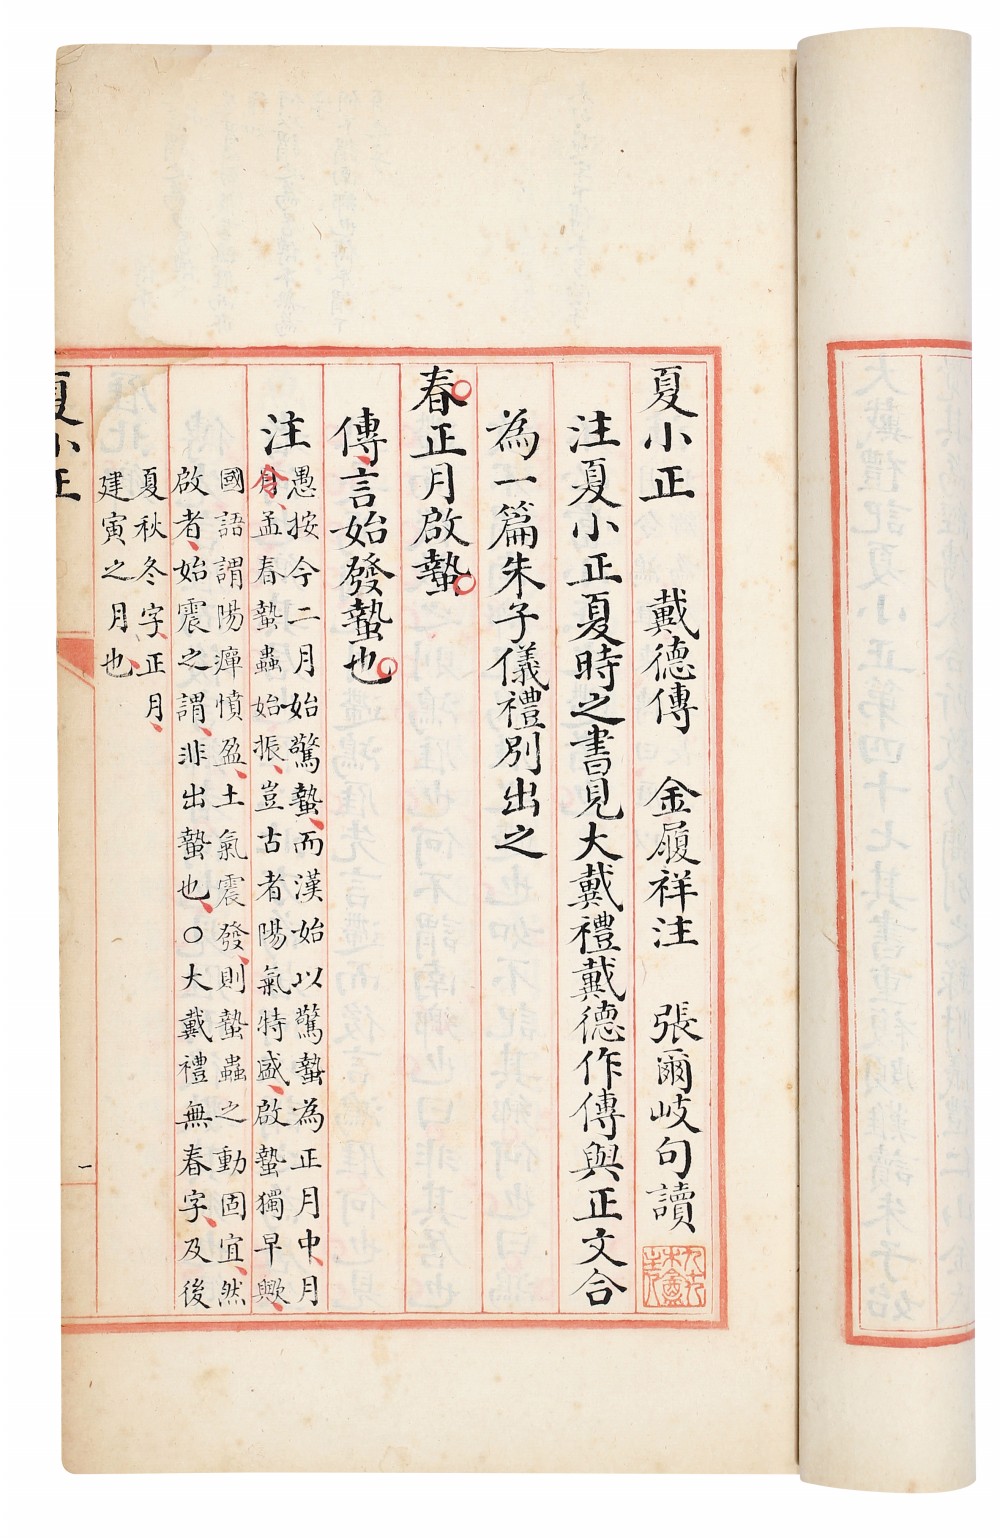 夏小正　戴德傳　金履祥注　張爾岐句讀
注夏小正夏時之書見大戴禮戴德作傳與正文合
為一篇朱子儀禮別出之
春正月啟蟄
傳言始發蟄也
注
愚按今二月始驚蟄而漢始以驚蟄為正月中月
令孟春蟄蟲始振豈古者陽氣特盛啟蟄獨早歟
國語謂陽癉憤盈土氣震發則蟄蟲之動固宜然
啟者始震之謂非出蟄也○大戴禮無春字及後
夏秋冬字正月
建寅之月也
夏小正
一